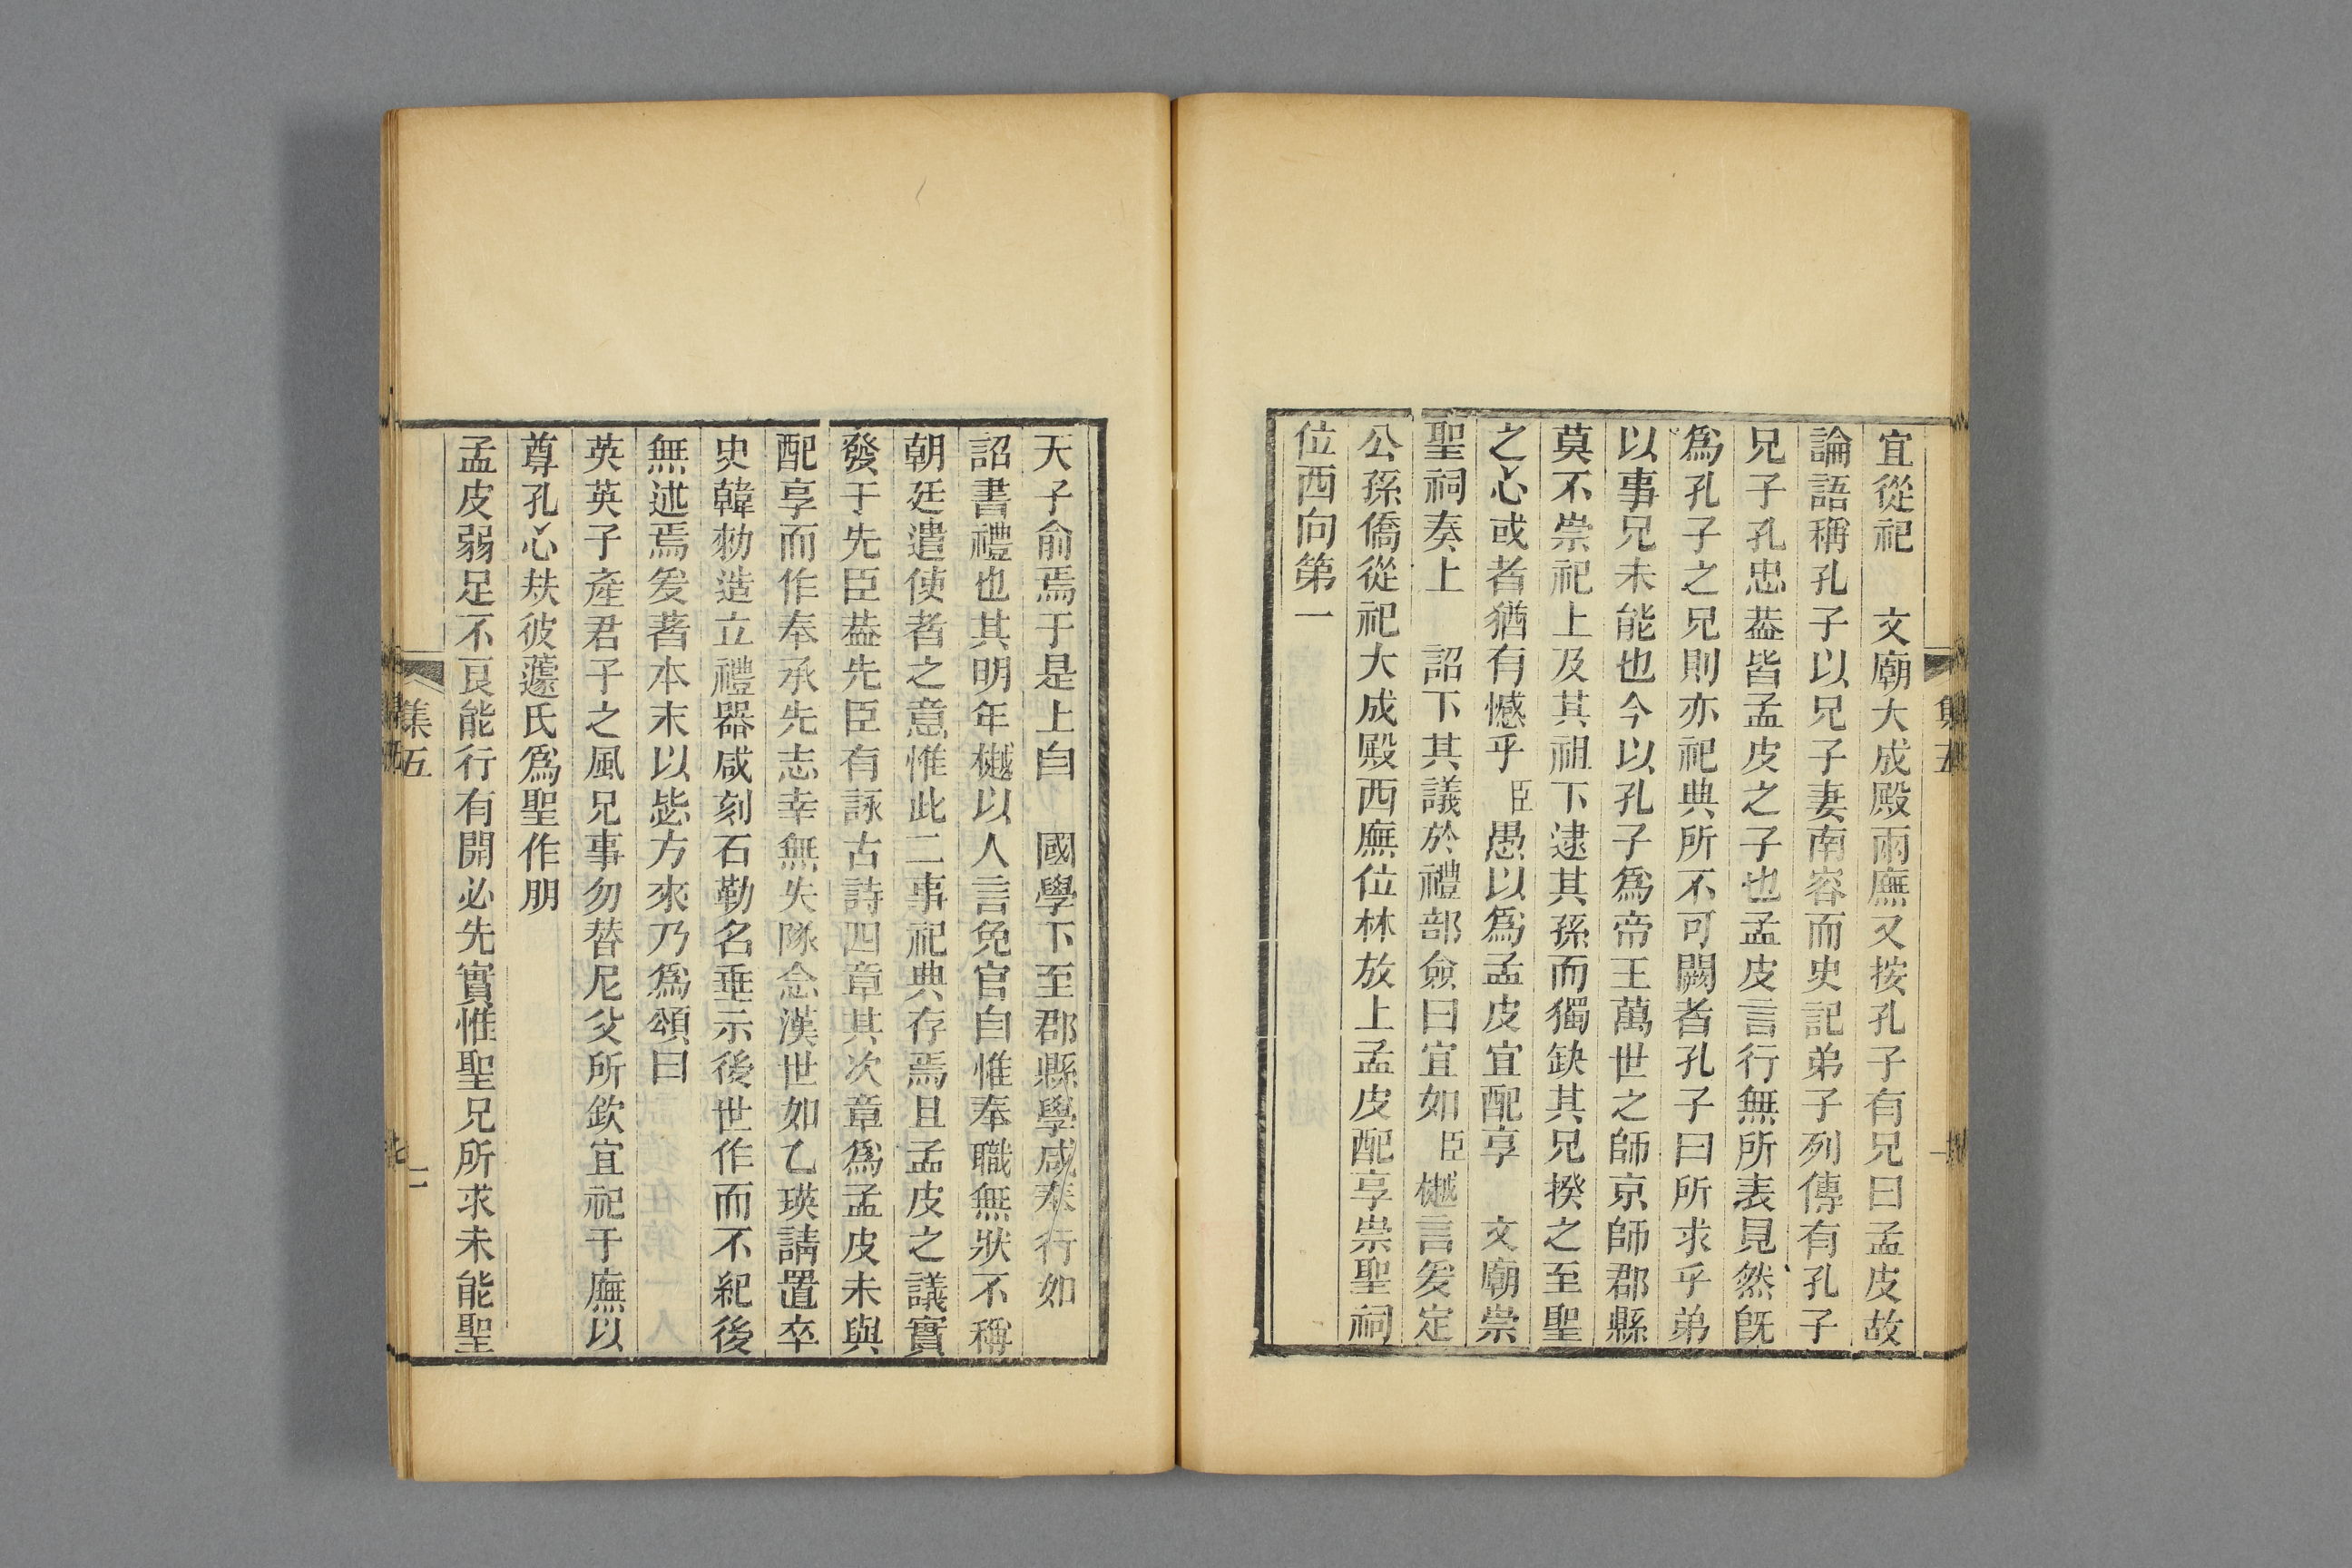 宜從祀　文廟大成殿兩廡又按孔子有兄曰孟皮故
論語稱孔子以兄子妻南容而史記弟子列傳有孔子
兄子孔忠葢皆孟皮之子也孟皮言行無所表見然旣
爲孔子之兄則亦祀典所不可闕者孔子曰所求乎弟
以事兄未能也今以孔子爲帝王萬世之師京師郡縣
莫不崇祀上及其祖下逮其孫而獨缺其兄揆之至聖
之心或者猶有憾乎臣愚以爲孟皮宜配享　文廟崇
聖祠奏上　詔下其議於禮部僉曰宜如臣樾言爰定
公孫僑從祀大成殿西廡位林放上孟皮配享崇聖祠
位西向第一
集五
天子俞焉于是上自　國學下至郡縣學咸奉行如
詔書禮也其明年樾以人言免官自惟奉職無狀不稱
朝廷遣使者之意惟此二事祀典存焉且孟皮之議實
發于先臣葢先臣有詠古詩四章其次章爲孟皮未與
配享而作奉承先志幸無失隊念漢世如乙瑛請置卒
史韓勑造立禮器咸刻石勒名垂示後世作而不紀後
無述焉爰著本末以毖方來乃爲頌曰
英英子產君子之風兄事勿替尼父所欽宜祀于廡以
尊孔心夶彼蘧氏爲聖作朋
孟皮弱足不良能行有開必先實惟聖兄所求未能聖
集五
二